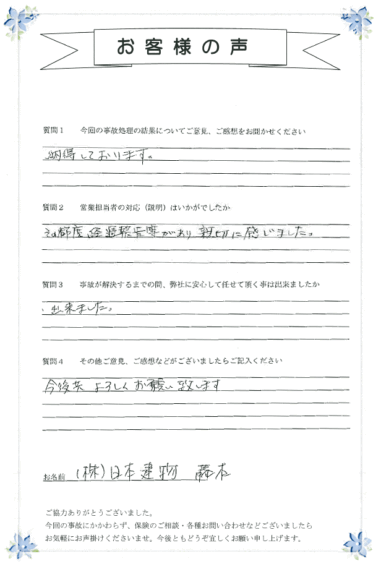 お客様の声
質問1 今回の事故処理の結果についてご意見、ご感想をお聞かせください
納得しております。
質問2 営業担当者の対応（説明）はいかがでしたか
その都度経過報告等があり親切に感じました。
質問3 事故が解決するまでの間、弊社に安心して任せて頂く事は出来ましたか
出来ました。
質問4 その他ご意見、ご感想などがございましたらご記入ください
今後共よろしくお願い致します
お名前 (株)日本建物 藤本
ご協力ありがとうございました。
今回の事故にかかわらず、保険のご相談・各種お問い合わせなどございましたら
お気軽にお声掛けくださいませ。今後ともどうぞ宜しくお願い申し上げます。